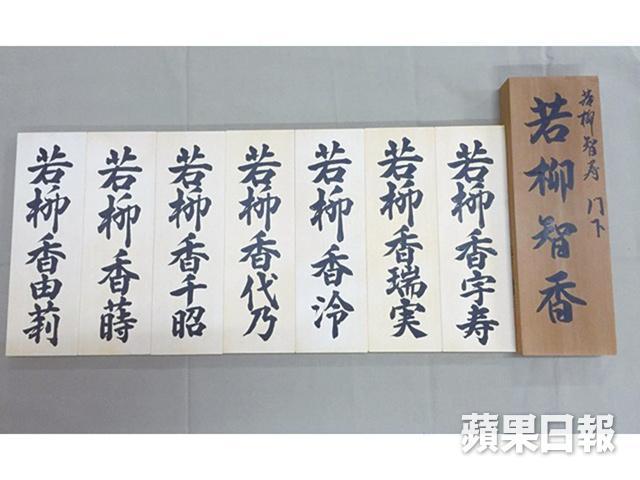 若柳智寿 门下
若柳智香
若柳香宇寿
若柳香瑞実
若柳香泠
若柳香代乃
若柳香千昭
若柳香蒔
若柳香由莉
蘋果日報